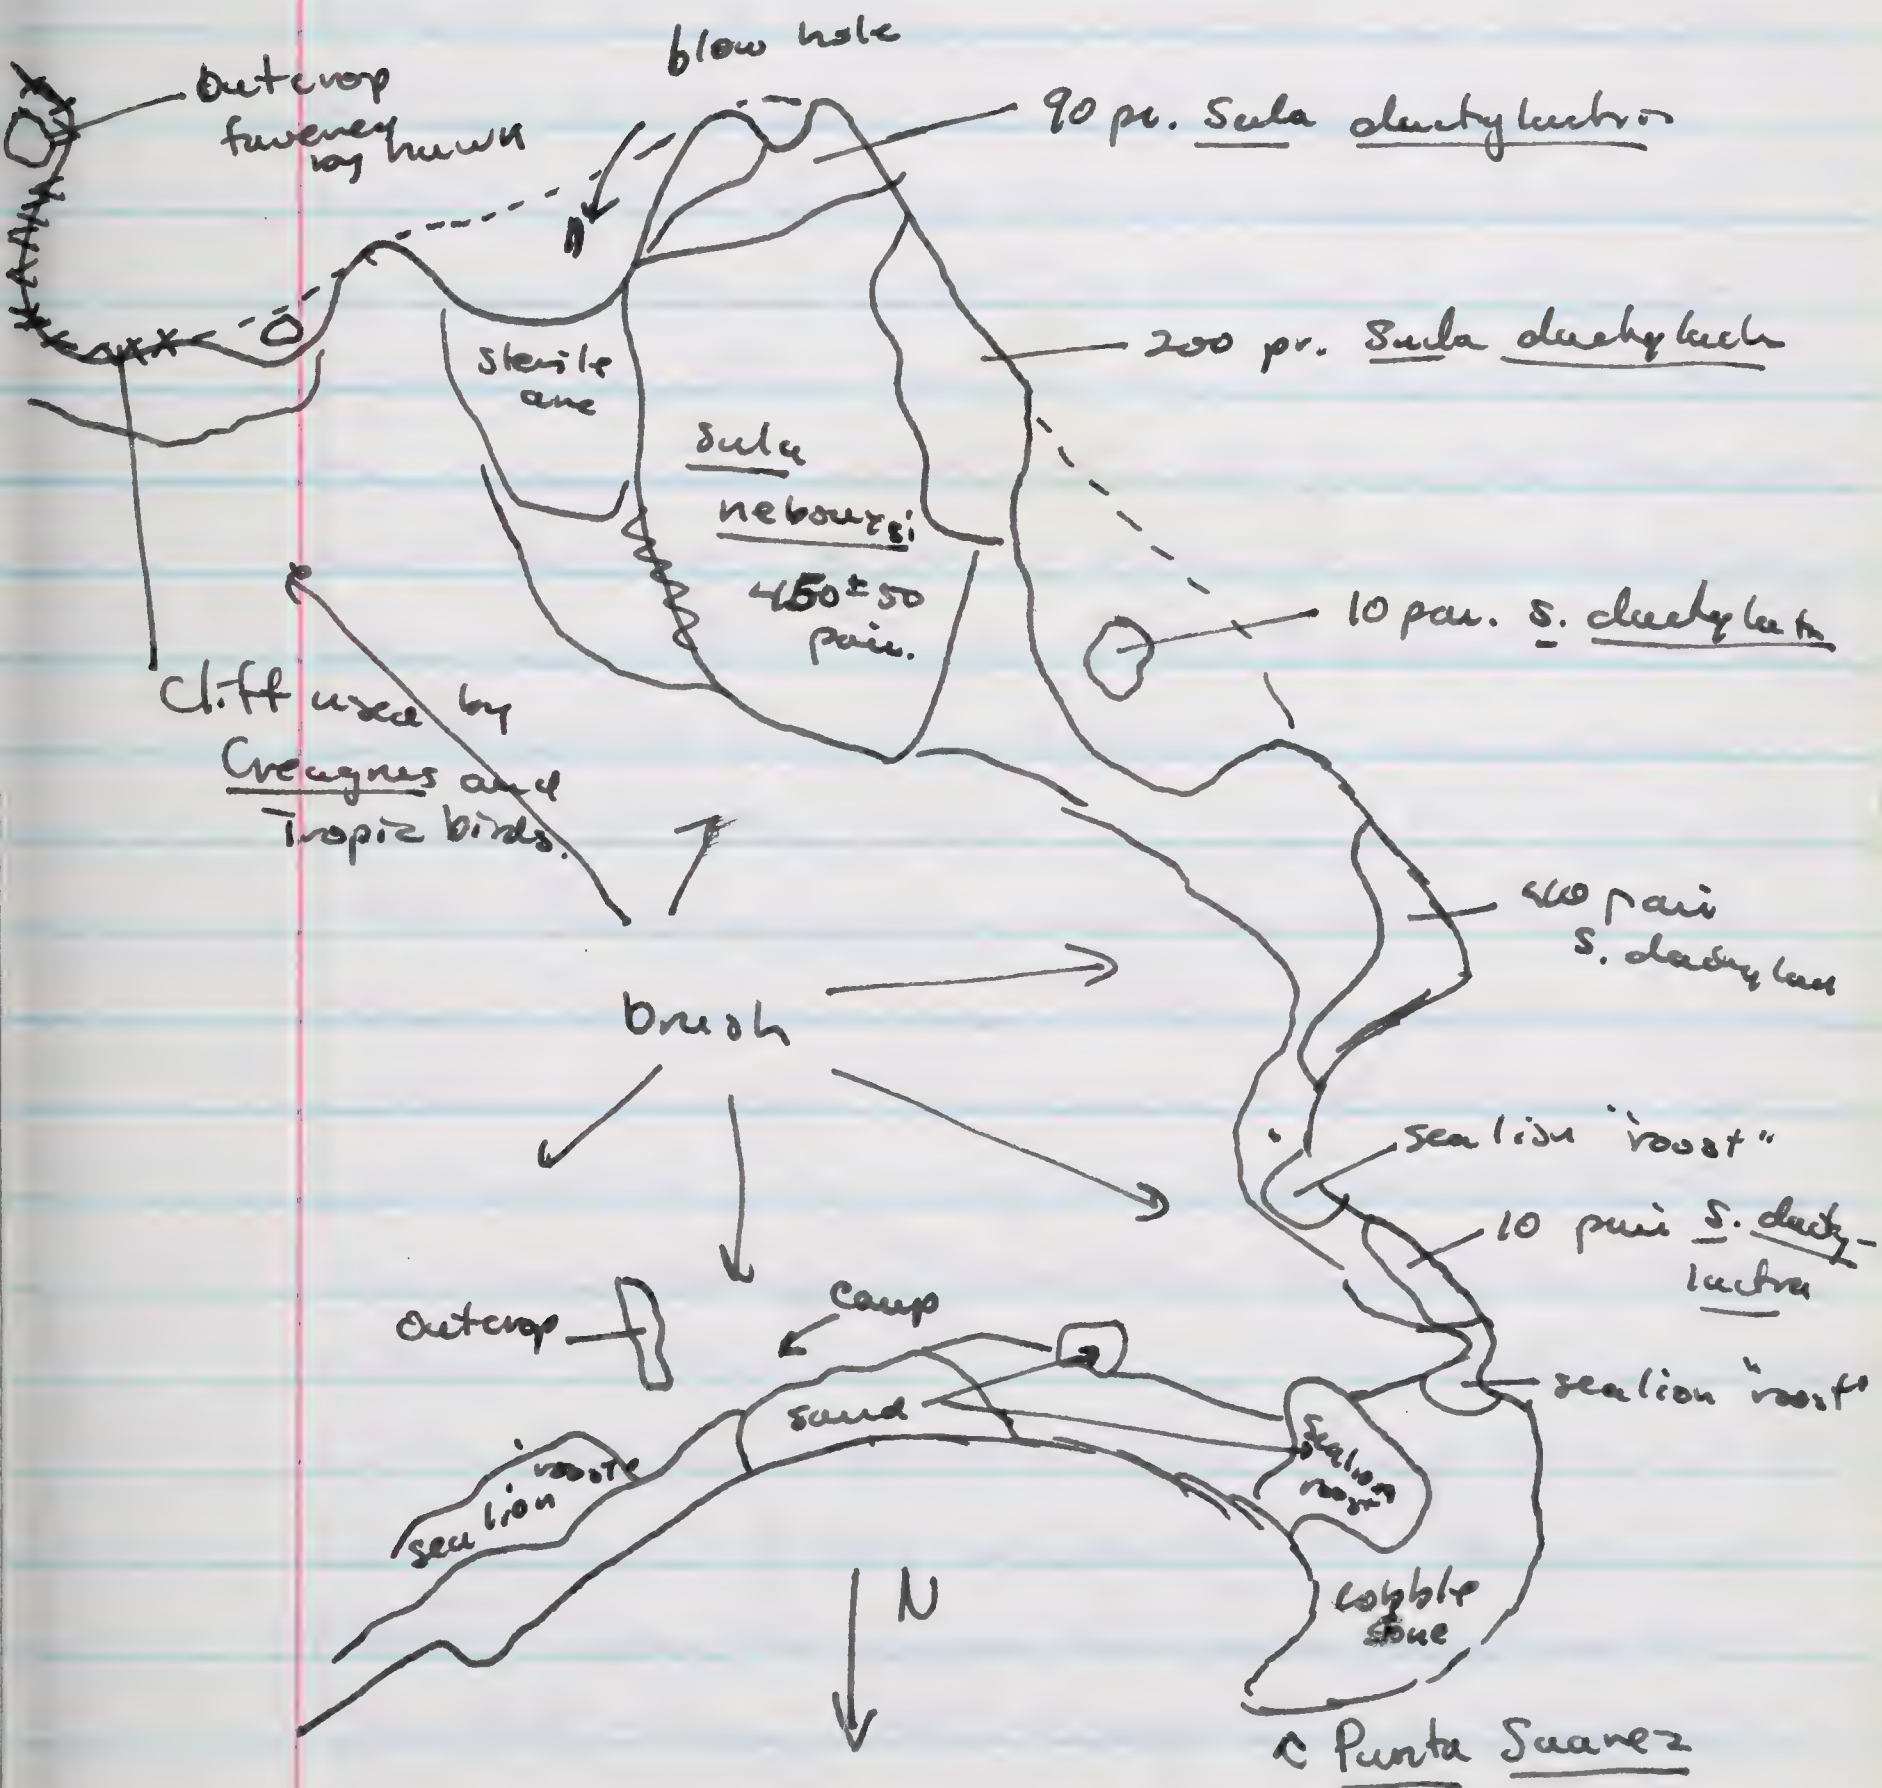 blow hole
Outcrop
by hawk
90 pr. Sula dactylactra
200 pr. Sula dactylactr
sterile
Sula
nebouxsi
450 ± 50
pair.
10 pair. S. dactylatra
Cliff used by
Creagrus and
Tropic birds.
pair
S. dactylac
brush
sea lion "roost"
10 pair S. dacty-
lactra
Outcrop
camp
sea lion "roost"
sand
sea lion
roost
sea lion roost
cobble
stone
N
Punta Suarez